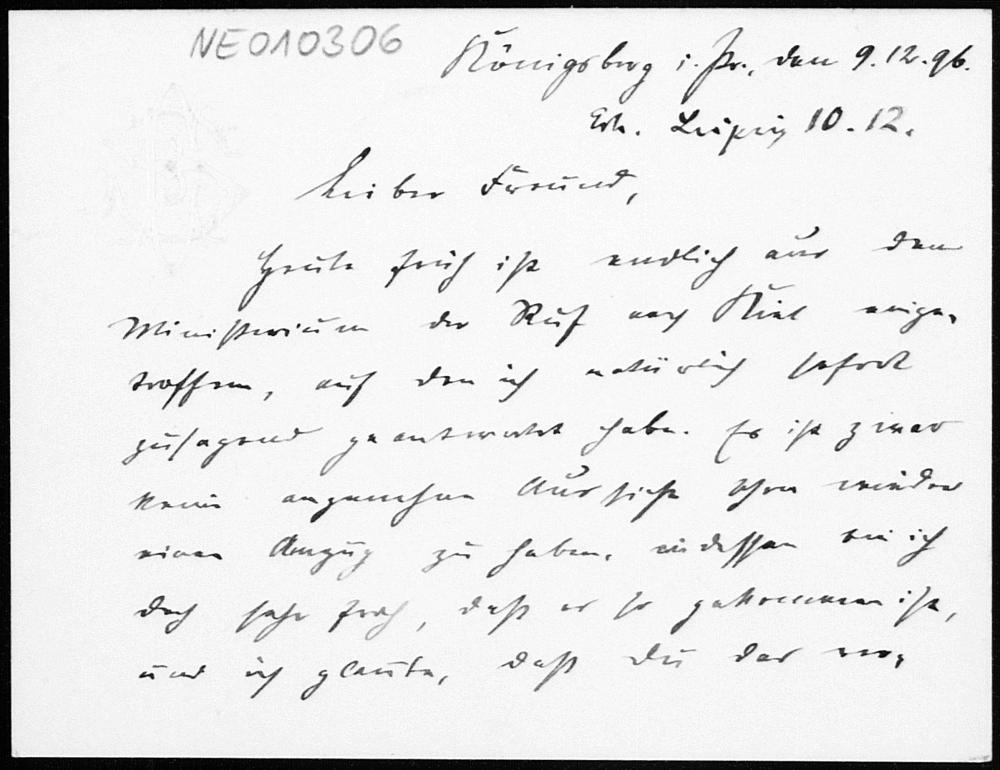 NE010306
Königsberg i. Pr., den 9.12.96.
Erh. Leipzig 10.12.
Lieber Freund,
Heute früh ist endlich aus dem
Ministerium der Ruf nach Kiel einge-
troffen, auf den ich natürlich sofort
zusagend geantwortet habe. Es ist zwar
keine angenehme Aussicht schon wieder
einen Umzug zu haben, indessen bin ich
doch sehr froh, daß es so gekommen ist,
und ich glaube, daß Du das